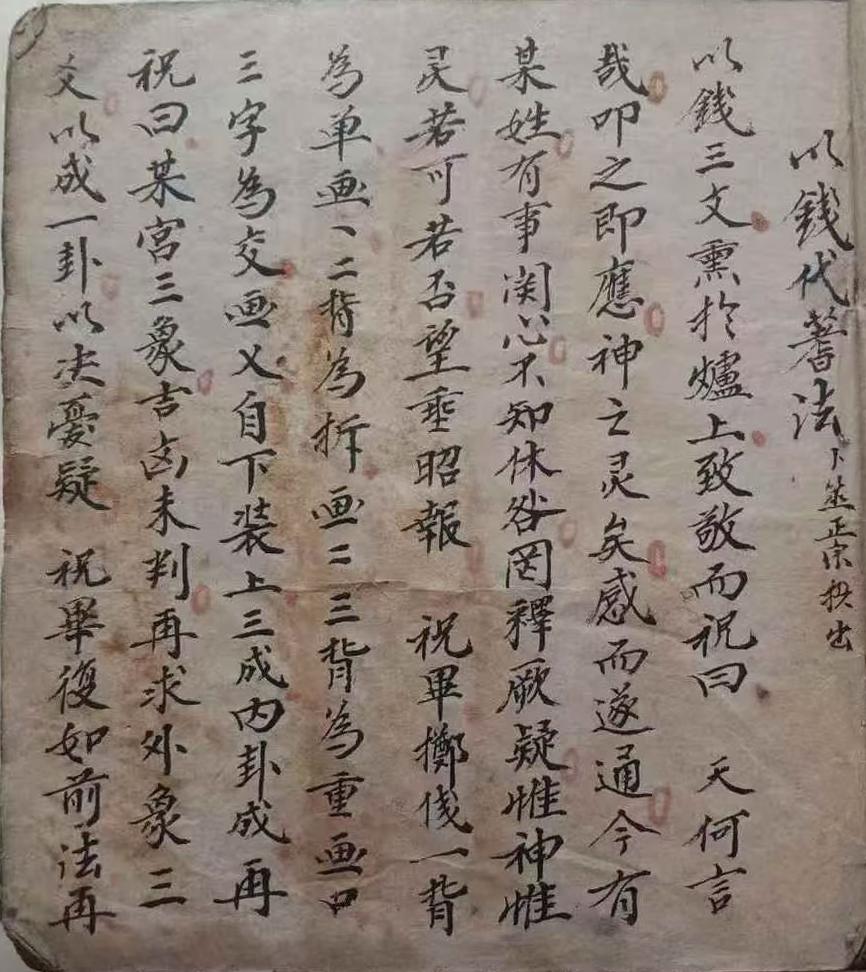 以錢代蓍法 卜筮正宗摆出
以錢三文熏扵爐上致敬而祝曰 天何言
哉叩之即應神之灵矣感而遂通今有
某姓有事関心不知休咎罔釋厥疑惟神惟
灵若可若否望垂昭報 祝畢擲俴一背
為单画丶二背為拆画二三背為重画口
三字為交画乂自下装上三成内卦成再
祝曰某宮三象吉㐫未判再求外象三
爻以成一卦以决憂疑 祝畢復如前法再